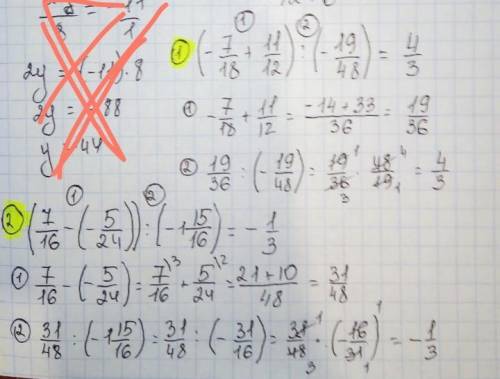 8 = 11/1
2y = (-11)·8
2y = -88
y = 44
① ②
1) (-7/18 + 11/12) : (-19/48) = 4/3
① -7/18 + 11/12 = (-14+33)/36 = 19/36
② 19/36 : (-19/48) = 19/36 · 48/19 = 4/3
① ②
2) (7/16 - (-5/24)) : (-1 15/16) = -1/3
① 7/16 - (-5/24) = 7/16 \3 + 5/24 \2 = (21+10)/48 = 31/48
② 31/48 : (-1 15/16) = 31/48 : (-31/16) = 31/48 · (-16/31) = -1/3